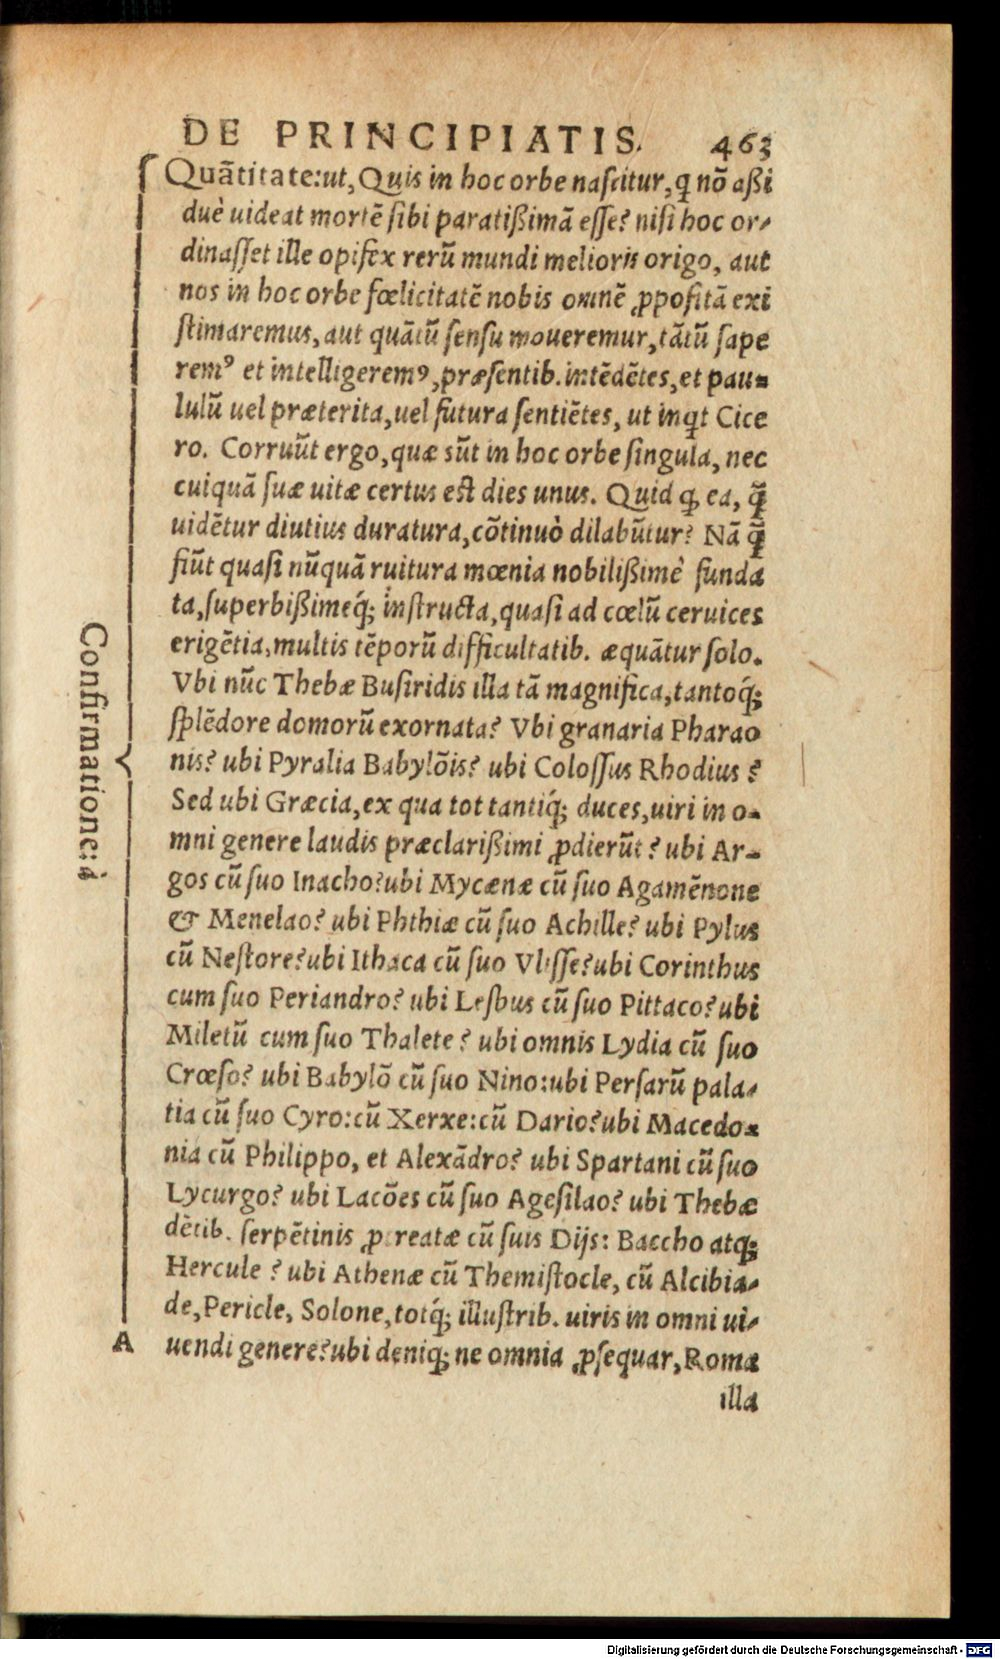 DE PRINCIPIATIS. 463
Quãtitate:ut, Quis in hoc orbe naſcitur, ꝗ nõ aßi
duè uideat mortẽ ſibi paratißimã eſſe? niſi hoc or-
dinaſſet ille opifex rerũ mundi melioris origo, aut
nos in hoc orbe fœlicitatẽ nobis omnẽ ꝓpoſitã exi
ſtimaremus, aut quãtũ ſenſu moueremur, tãtũ ſape
remꝰ et intelligeremꝰ, præſentib. intẽdẽtes, et pau-
lulũ uel præterita, uel futura ſentiẽtes, ut inꝗt Cice
ro. Corruũt ergo, quæ sũt in hoc orbe ſingula, nec
cuiquã ſuæ uitæ certus eſt dies unus. Quid ꝙ ea, q̃
uidẽtur diutius duratura, cõtinuò dilabũtur? Nã q̃
fiũt quaſi nũquã ruitura mœnia nobilißimè funda
ta, ſuperbißimeq́; inſtructa, quaſi ad cœlũ ceruices
erigẽtia, multis tẽporũ difficultatib. æquãtur ſolo.
Vbi nũc Thebæ Buſiridis illa tã magnifica, tantoq́;
ſplẽdore domorũ exornata? Vbi granaria Pharao
nis? ubi Pyralia Babylõis? ubi Coloſſus Rhodius?
Sed ubi Græcia, ex qua tot tantiq́; duces, uiri in o-
mni genere laudis præclarißimi ꝓdierũt? ubi Ar-
gos cũ ſuo Inacho? ubi Mycænæ cũ ſuo Agamẽnone
& Menelao? ubi Phthiæ cũ ſuo Achille? ubi Pylus
cũ Neſtore? ubi Ithaca cũ ſuo Vliſſe? ubi Corinthus
cum ſuo Periandro? ubi Leſbus cũ ſuo Pittaco? ubi
Miletũ cum ſuo Thalete? ubi omnis Lydia cũ ſuo
Crœſo? ubi Babylõ cũ ſuo Nino: ubi Perſarũ pala-
tia cũ ſuo Cyro: cũ Xerxe: cũ Dario? ubi Macedo-
nia cũ Philippo, et Alexãdro? ubi Spartani cũ ſuo
Lycurgo? ubi Lacões cũ ſuo Ageſilao? ubi Thebæ
dẽtib. ſerpẽtinis ꝓcreatæ cũ ſuis Dijs: Baccho atq;
Hercule? ubi Athenæ cũ Themiſtocle, cũ Alcibia-
de, Pericle, Solone, totq́; illuſtrib. uiris in omni ui-
uendi genere? ubi deniq; ne omnia ꝓſequar, Roma
illa
Confirmatione: à
A
Digitalisierung gefördert durch die Deutsche Forschungsgemeinschaft - DFG